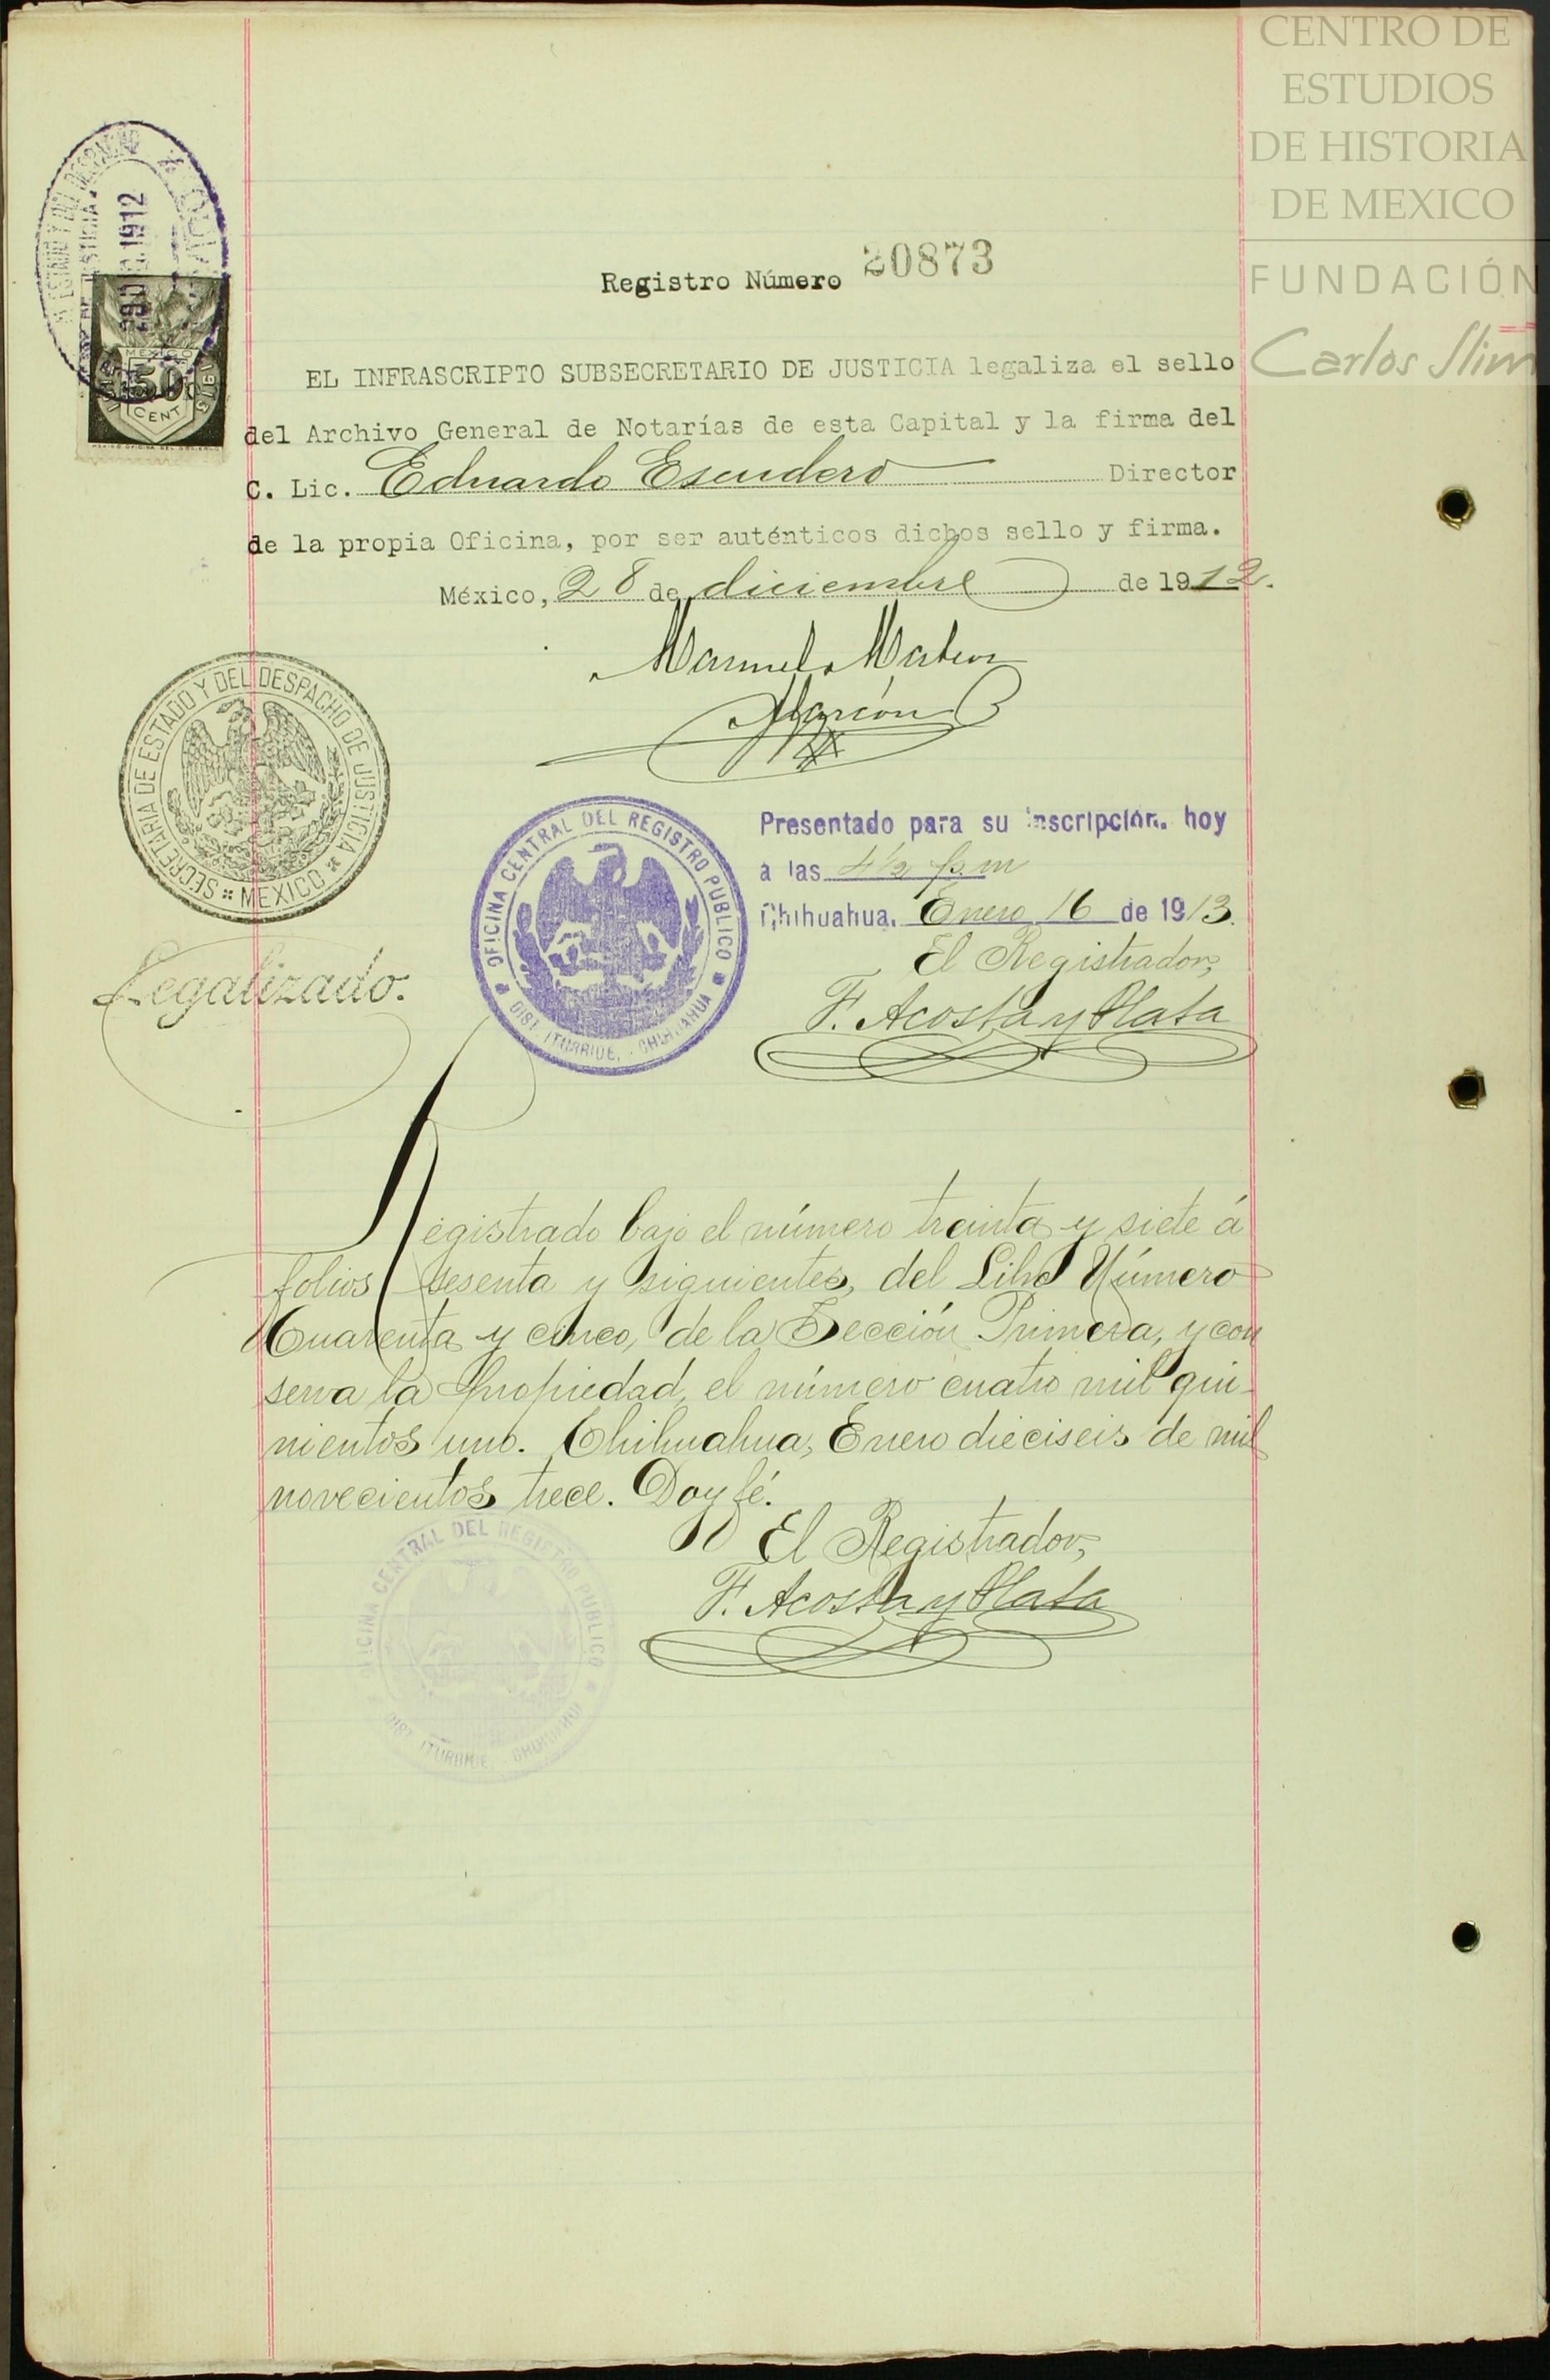 CENTRO DE
ESTUDIOS
DE HISTORIA
DE MEXICO
FUNDACIÓN
Carlos Slim
1912
MEXICO
50
CENT
Registro Número 20873
EL INFRASCRIPTO SUBSECRETARIO DE JUSTICIA legaliza el sello
del Archivo General de Notarías de esta Capital y la firma del
C. Lic. Eduardo Escudero Director
de la propia Oficina, por ser auténticos dichos sello y firma.
México, 28 de diciembre de 1912.
Manuel Mateos
Alarcón
SECRETARIA DE ESTADO Y DEL DESPACHO DE JUSTICIA
MEXICO
Legalizado.
OFICINA CENTRAL DEL REGISTRO PUBLICO
DIST. ITURBIDE, CHIHUAHUA
Presentado para su inscripción. hoy
a las 4½ p.m
Chihuahua. Enero 16 de 1913.
El Registrador,
F. Acosta y Plata
Registrado bajo el número treinta y siete á
folios sesenta y siguientes, del Libro Número
Cuarenta y cinco, de la Sección Primera, y con
serva la propiedad, el número cuatro mil qui-
nientos uno. Chihuahua, Enero dieciseis de mil
novecientos trece. Doy fé.
El Registrador,
F. Acosta y Plata
OFICINA CENTRAL DEL REGISTRO PUBLICO
DIST. ITURBIDE, CHIHUAHUA